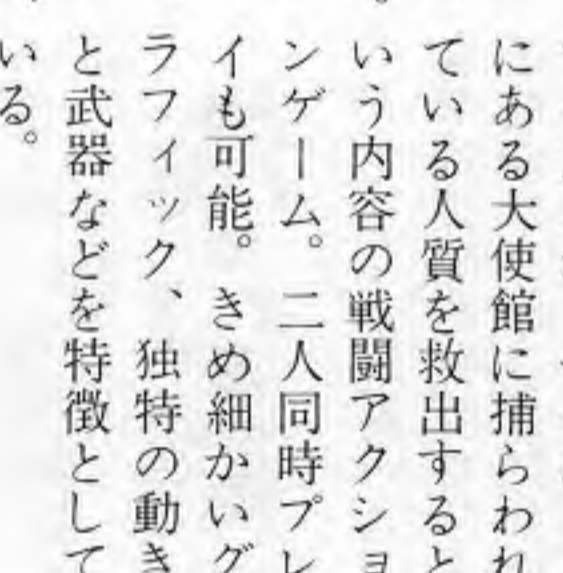 にある大使館に捕らわれ
ている人質を救出すると
いう内容の戦闘アクショ
ンゲーム。二人同時プレ
イも可能。きめ細かいグ
ラフィック、独特の動き
と武器などを特徴として
いる。